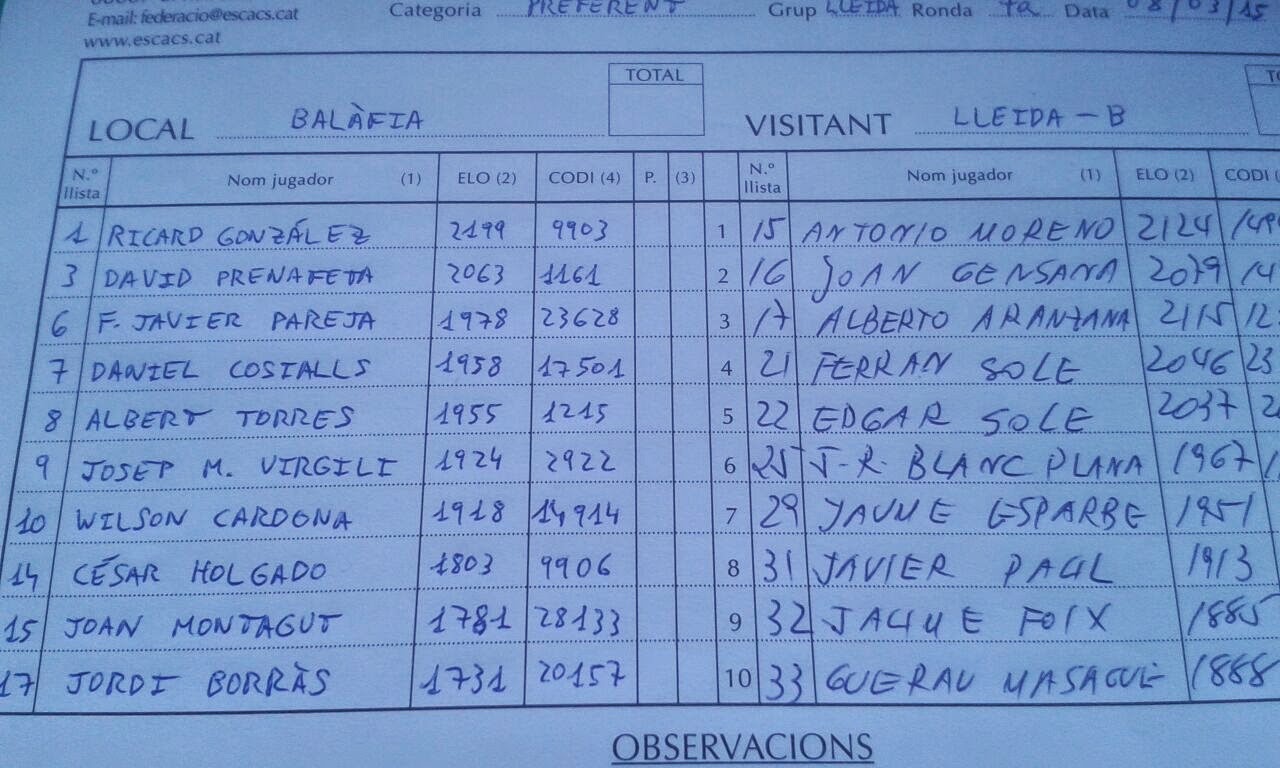 E-mail: federacio@escacs.cat Categoria PREFERENT Grup LLEIDA Ronda 7a Data 08/03/15
www.escacs.cat
TOTAL
LOCAL BALÀFIA VISITANT LLEIDA-B
N.º llista Nom jugador (1) ELO (2) CODI (4) P. (3) N.º llista Nom jugador (1) ELO (2) CODI (
1 RICARD GONZÁLEZ 2199 9903 1 15 ANTONIO MORENO 2124 149
3 DAVID PRENAFETA 2063 1161 2 16 JOAN GENSANA 2079 14
6 F. JAVIER PAREJA 1978 23628 3 17 ALBERTO ARANZANA 2115 12
7 DANIEL COSTALLS 1958 17501 4 21 FERRAN SOLE 2046 23
8 ALBERT TORRES 1955 1215 5 22 EDGAR SOLE 2037 2
9 JOSEP M. VIRGILI 1924 2922 6 25 J-R. BLANC PLANA 1967 1
10 WILSON CARDONA 1918 14914 7 29 JAUME ESPARBE 1951
14 CÉSAR HOLGADO 1803 9906 8 31 JAVIER PAUL 1913
15 JOAN MONTAGUT 1781 28133 9 32 JAUME FOIX 1885
17 JORDI BORRÀS 1731 20157 10 33 GUERAU MASAGUE 1888
OBSERVACIONS